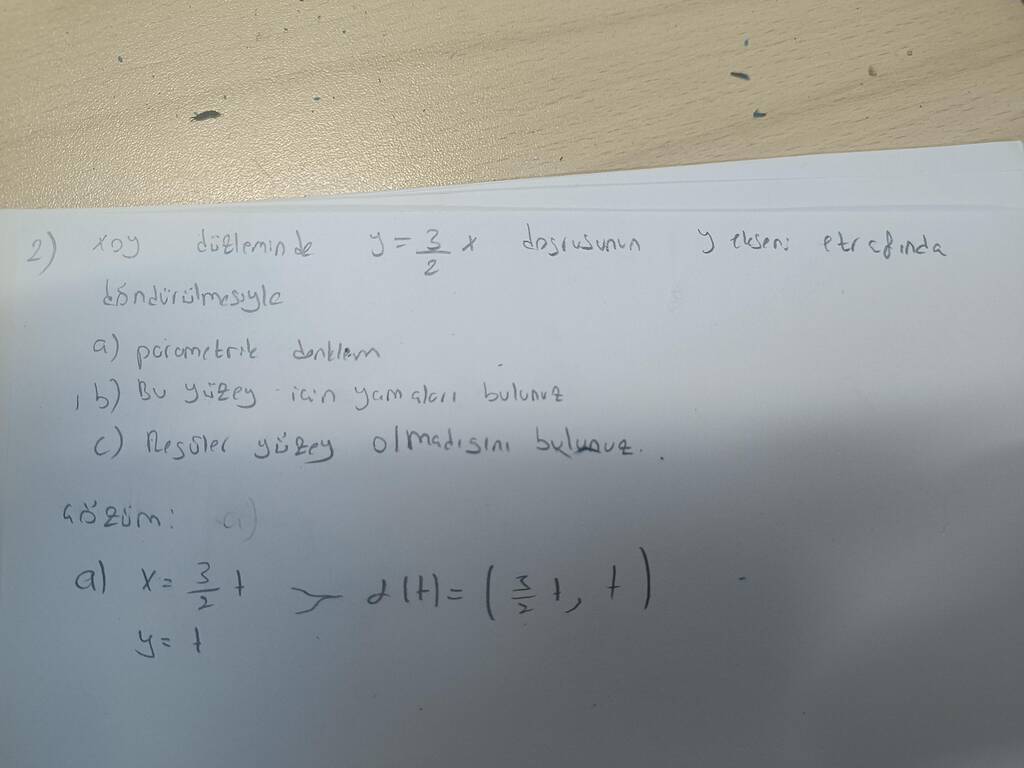 2) xoy düzleminde y = 3/2 x doğrusunun y ekseni etrafında
döndürülmesiyle
a) parametrik denklem
b) Bu yüzey için yamaları bulunuz
c) Regüler yüzey olmadığını bulunuz.
çözüm: a)
a) x = 3/2 t > α(t) = (3/2 t, t)
y = t